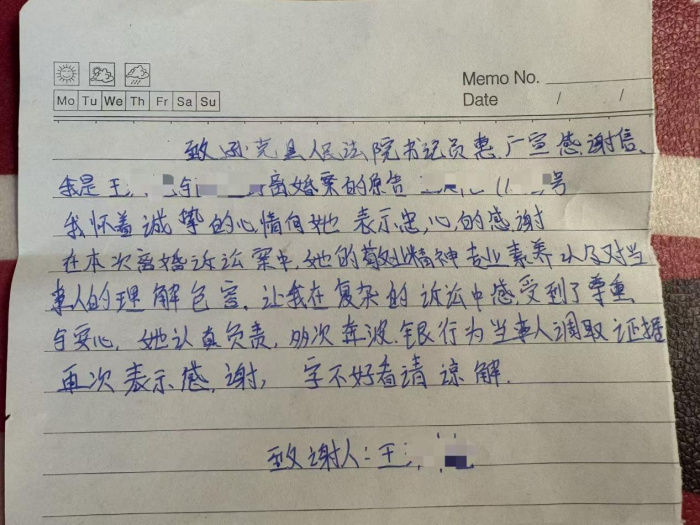 Memo No.
Mo Tu We Th Fr Sa Su
Date / /
致逊克县人民法院书记员惠广宣感谢信
我是王 与 离婚案的原告 号
我怀着诚挚的心情向她表示忠心的感谢
在本次离婚诉讼案中,她的敬业精神专业素养以及对当
事人的理解包容、让我在复杂的诉讼中感受到了尊重
与安心,她认真负责,多次奔波、银行为当事人调取证据
再次表示感谢, 字不好看请谅解.
致谢人:王